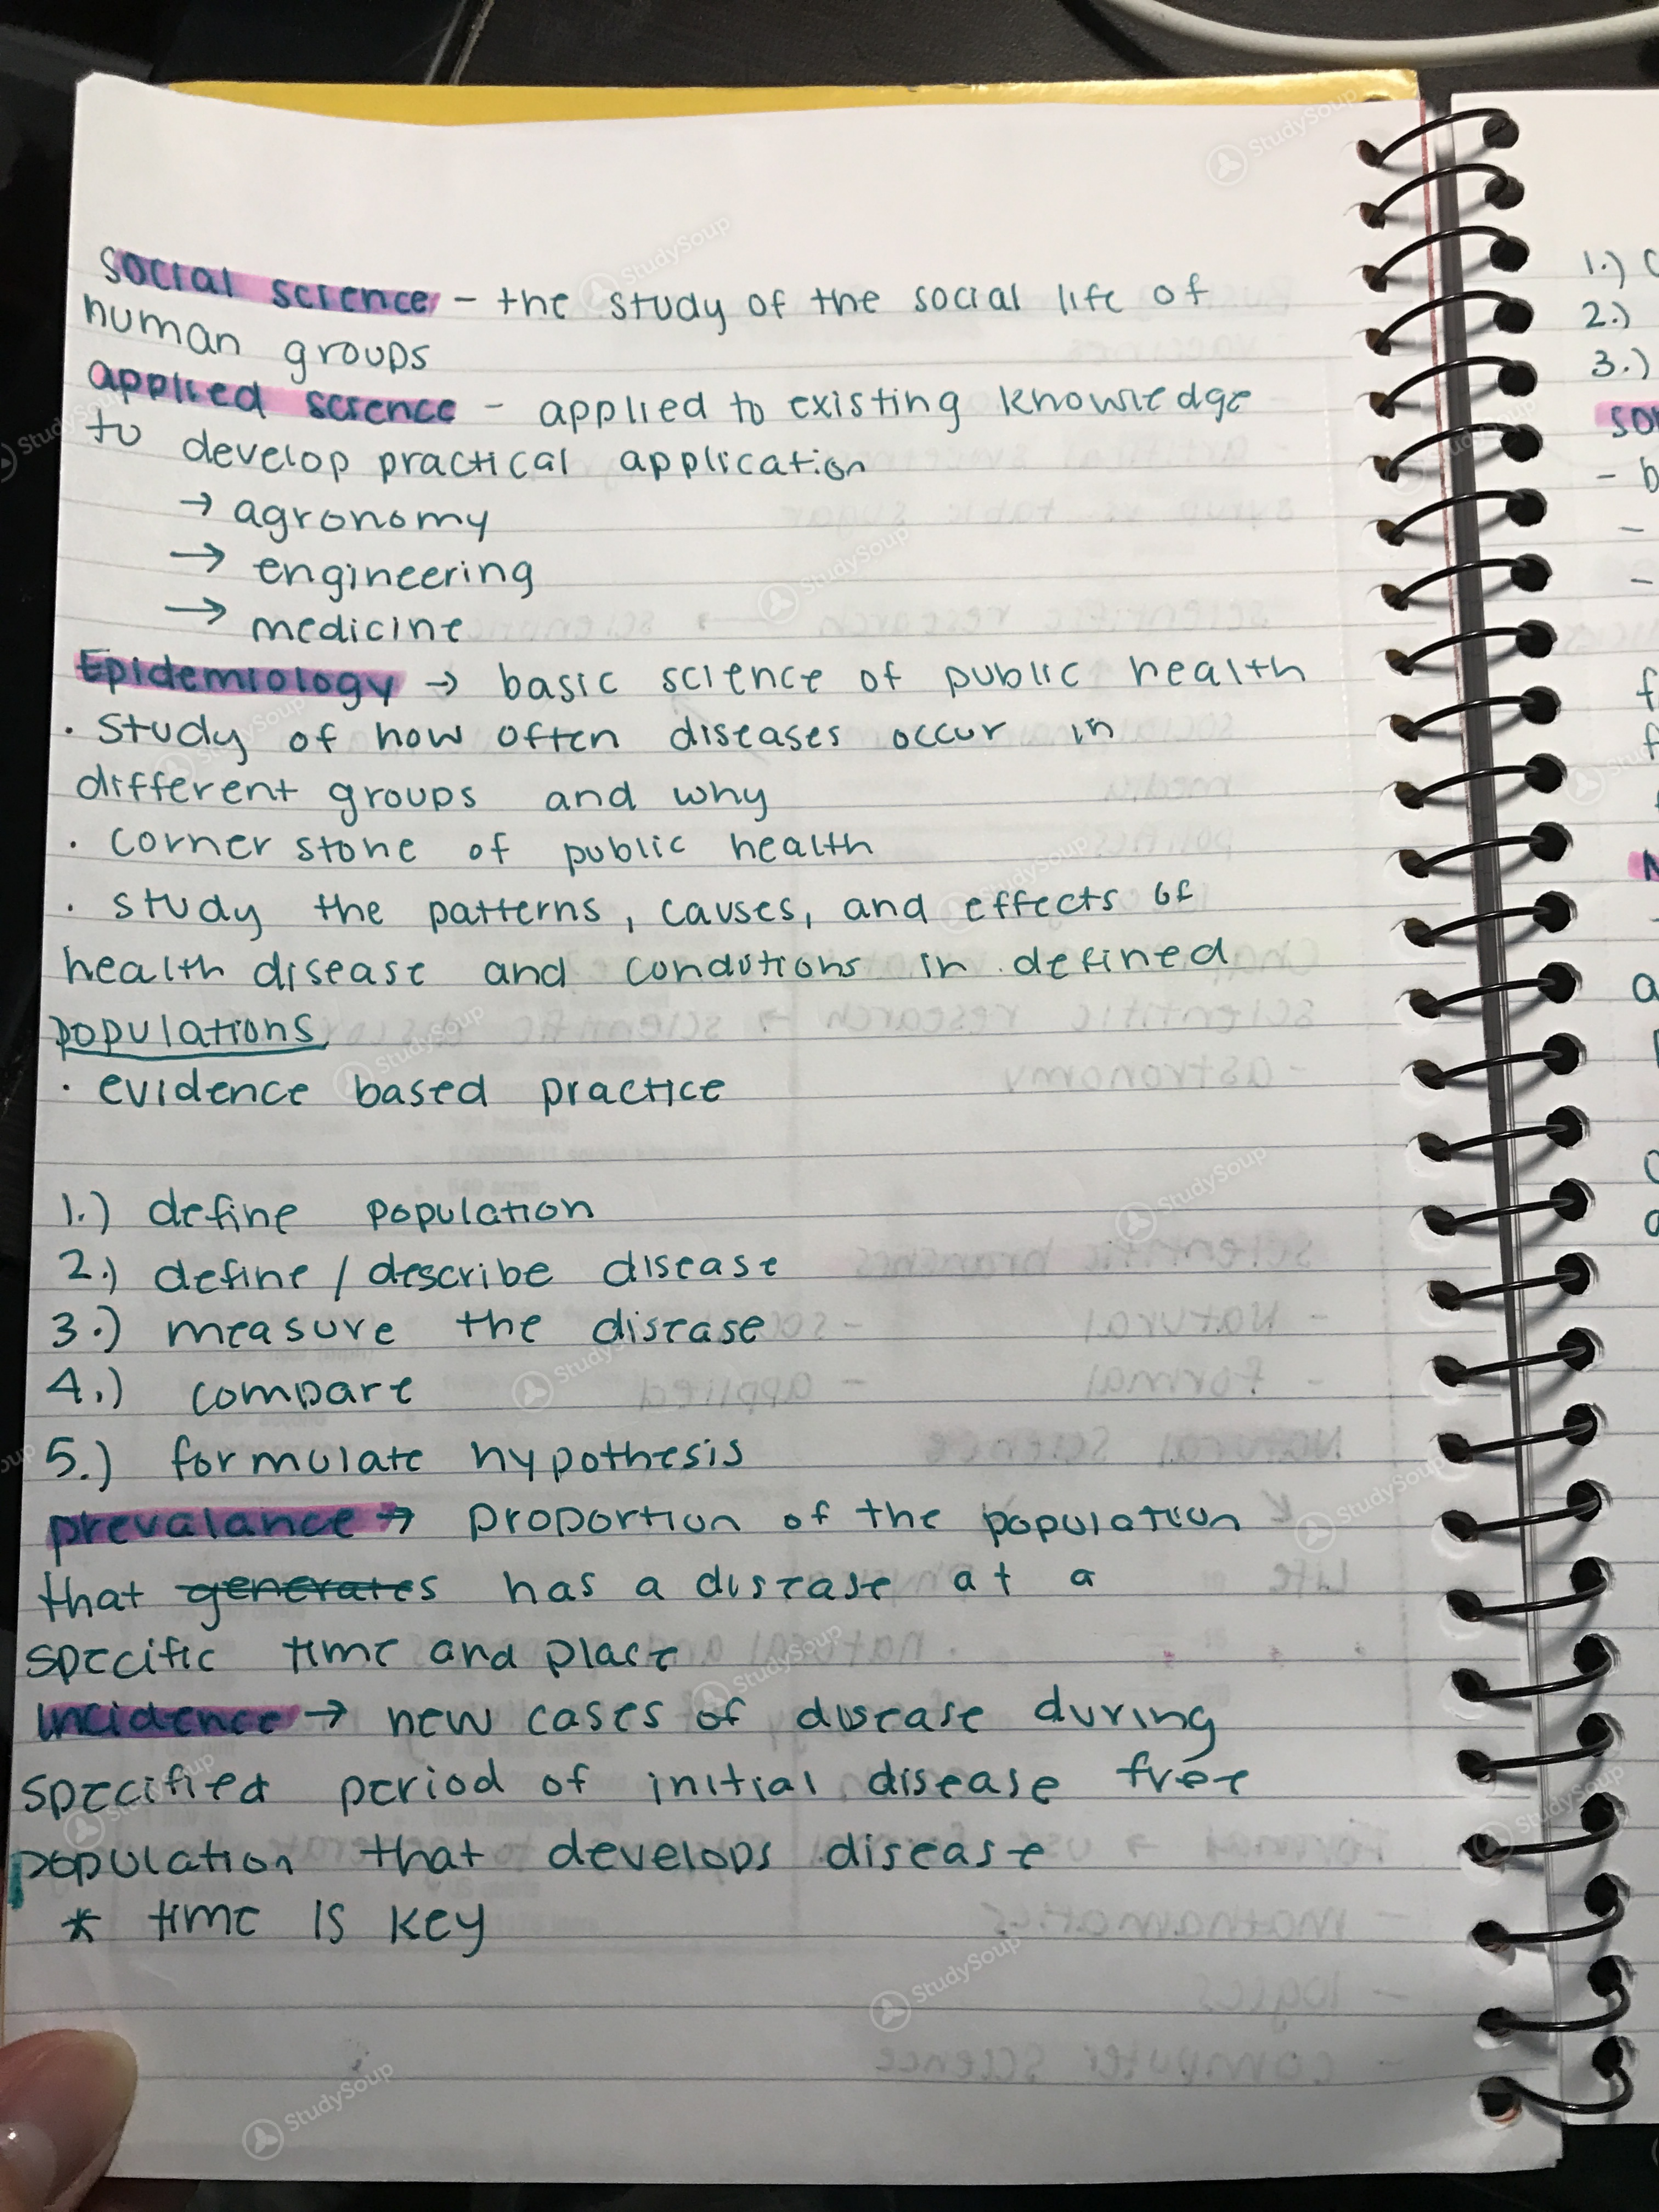 social science - the study of the social life of
human groups
applied science - applied to existing knowledge
to develop practical application
→ agronomy
→ engineering
→ medicine
Epidemiology → basic science of public health
· Study of how often diseases occur in
different groups and why
· corner stone of public health
· study the patterns, causes, and effects of
health disease and conditions in defined
populations
· evidence based practice
1.) define population
2.) define / describe disease
3.) measure the disease
4.) compare
5.) formulate hypothesis
prevalance → proportion of the population
that generates has a disease at a
specific time and place
incidence → new cases of disease during
specified period of initial disease free
population that develops disease
* time is key
1.)
2.)
3.)
StudySoup